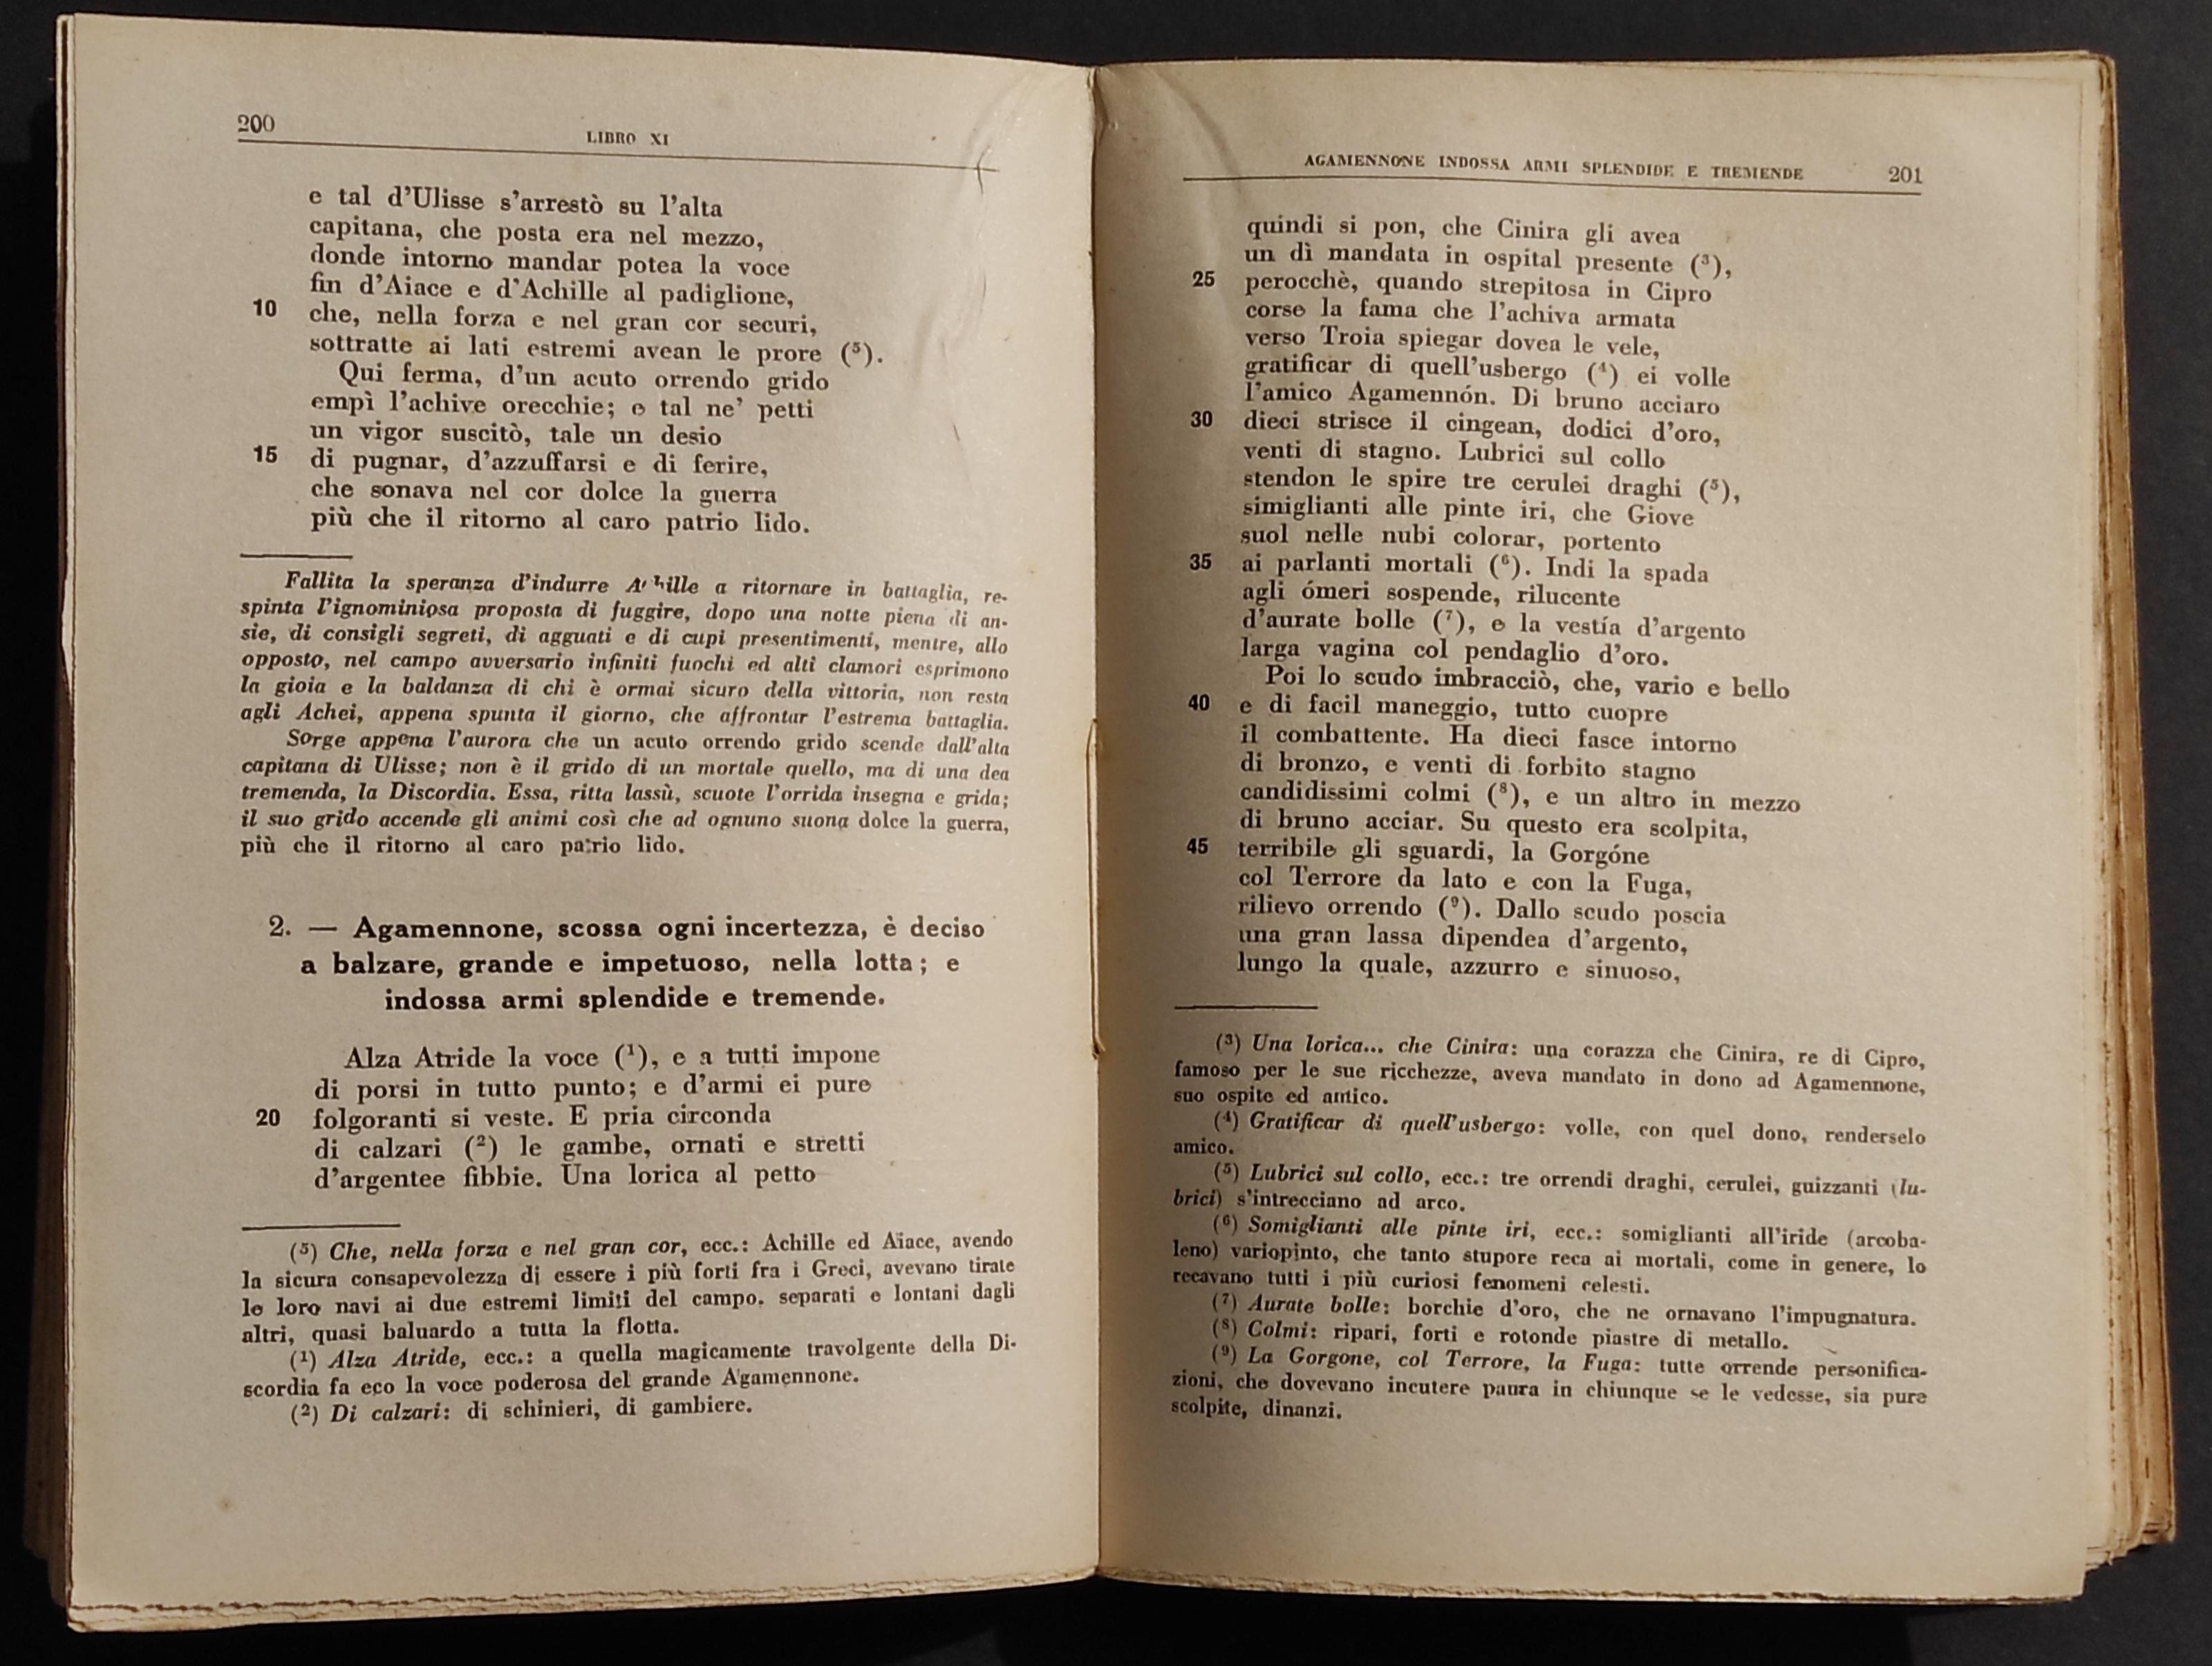 200
LIBRO XI
e tal d'Ulisse s'arrestò su l'alta
capitana, che posta era nel mezzo,
donde intorno mandar potea la voce
fin d'Aiace e d'Achille al padiglione,
10 che, nella forza e nel gran cor securi,
sottratte ai lati estremi avean le prore (⁵).
Qui ferma, d'un acuto orrendo grido
empì l'achive orecchie; e tal ne' petti
un vigor suscitò, tale un desio
15 di pugnar, d'azzuffarsi e di ferire,
che sonava nel cor dolce la guerra
più che il ritorno al caro patrio lido.
Fallita la speranza d'indurre Achille a ritornare in battaglia, re-
spinta l'ignominiosa proposta di fuggire, dopo una notte piena di an-
sie, di consigli segreti, di agguati e di cupi presentimenti, mentre, allo
opposto, nel campo avversario infiniti fuochi ed alti clamori esprimono
la gioia e la baldanza di chi è ormai sicuro della vittoria, non resta
agli Achei, appena spunta il giorno, che affrontar l'estrema battaglia.
Sorge appena l'aurora che un acuto orrendo grido scende dall'alta
capitana di Ulisse; non è il grido di un mortale quello, ma di una dea
tremenda, la Discordia. Essa, ritta lassù, scuote l'orrida insegna e grida;
il suo grido accende gli animi così che ad ognuno suona dolce la guerra,
più che il ritorno al caro patrio lido.
2. — Agamennone, scossa ogni incertezza, è deciso
a balzare, grande e impetuoso, nella lotta; e
indossa armi splendide e tremende.
Alza Atride la voce (¹), e a tutti impone
di porsi in tutto punto; e d'armi ei pure
20 folgoranti si veste. E pria circonda
di calzari (²) le gambe, ornati e stretti
d'argentee fibbie. Una lorica al petto
(⁵) Che, nella forza e nel gran cor, ecc.: Achille ed Aiace, avendo
la sicura consapevolezza di essere i più forti fra i Greci, avevano tirate
le loro navi ai due estremi limiti del campo, separati e lontani dagli
altri, quasi baluardo a tutta la flotta.
(¹) Alza Atride, ecc.: a quella magicamente travolgente della Di-
scordia fa eco la voce poderosa del grande Agamennone.
(²) Di calzari: di schinieri, di gambiere.
AGAMENNONE INDOSSA ARMI SPLENDIDE E TREMENDE 201
quindi si pon, che Cinira gli avea
un dì mandata in ospital presente (³),
25 perocchè, quando strepitosa in Cipro
corse la fama che l'achiva armata
verso Troia spiegar dovea le vele,
gratificar di quell'usbergo (⁴) ei volle
l'amico Agamennón. Di bruno acciaro
30 dieci strisce il cingean, dodici d'oro,
venti di stagno. Lubrici sul collo
stendon le spire tre cerulei draghi (⁵),
simiglianti alle pinte iri, che Giove
suol nelle nubi colorar, portento
35 ai parlanti mortali (⁶). Indi la spada
agli ómeri sospende, rilucente
d'aurate bolle (⁷), e la vestía d'argento
larga vagina col pendaglio d'oro.
Poi lo scudo imbracciò, che, vario e bello
40 e di facil maneggio, tutto cuopre
il combattente. Ha dieci fasce intorno
di bronzo, e venti di forbito stagno
candidissimi colmi (⁸), e un altro in mezzo
di bruno acciar. Su questo era scolpita,
45 terribile gli sguardi, la Gorgóne
col Terrore da lato e con la Fuga,
rilievo orrendo (⁹). Dallo scudo poscia
una gran lassa dipendea d'argento,
lungo la quale, azzurro e sinuoso,
(³) Una lorica... che Cinira: una corazza che Cinira, re di Cipro,
famoso per le sue ricchezze, aveva mandato in dono ad Agamennone,
suo ospite ed amico.
(⁴) Gratificar di quell'usbergo: volle, con quel dono, renderselo
amico.
(⁵) Lubrici sul collo, ecc.: tre orrendi draghi, cerulei, guizzanti (lu-
brici) s'intrecciano ad arco.
(⁶) Somiglianti alle pinte iri, ecc.: somiglianti all'iride (arcoba-
leno) variopinto, che tanto stupore reca ai mortali, come in genere, lo
recavano tutti i più curiosi fenomeni celesti.
(⁷) Aurate bolle: borchie d'oro, che ne ornavano l'impugnatura.
(⁸) Colmi: ripari, forti e rotonde piastre di metallo.
(⁹) La Gorgone, col Terrore, la Fuga: tutte orrende personifica-
zioni, che dovevano incutere paura in chiunque se le vedesse, sia pure
scolpite, dinanzi.